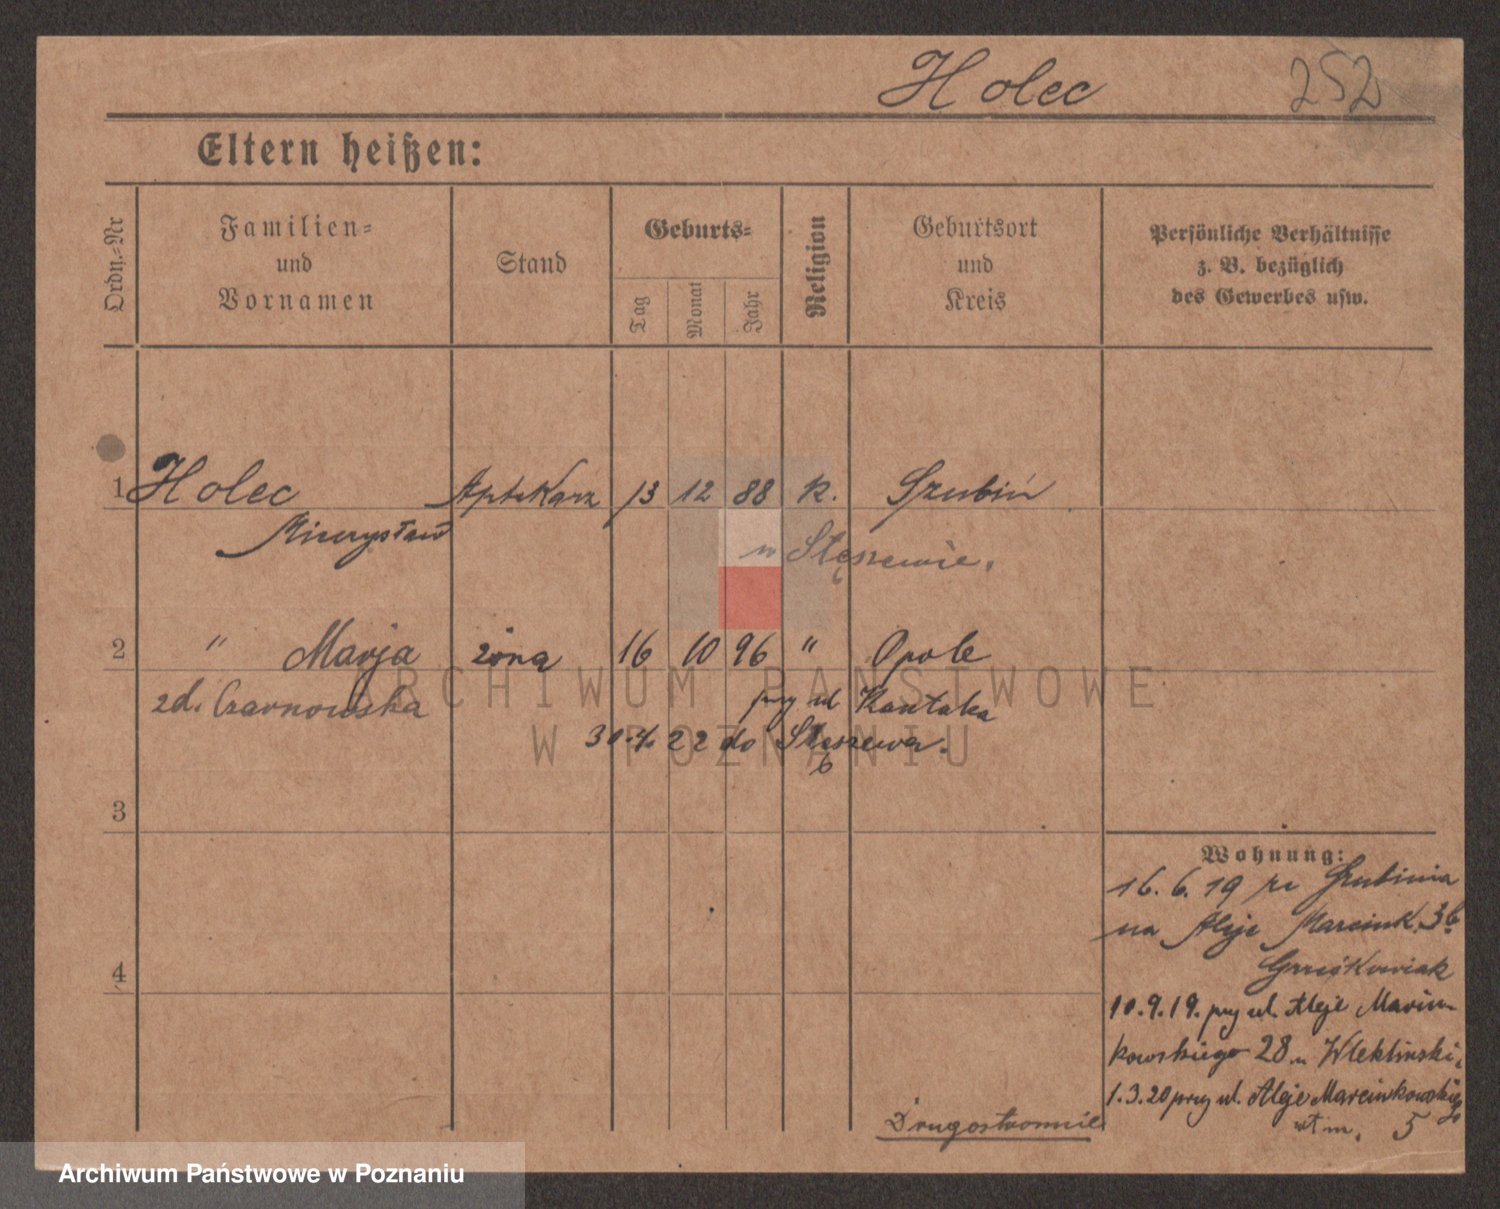 Holec 252
Eltern heißen:
Ordn.-Nr
Familien-
und
Vornamen
Stand
Geburts-
Tag
Monat
Jahr
Religion
Geburtsort
und
Kreis
Persönliche Verhältnisse
z. B. bezüglich
des Gewerbes usw.
1 Holec Aptekarz 13 12 88 k. Szubin
Mieczysław
w Stęszewie.
2 " Marja żona 16 10 96 " Opole
zd. Czarnowska przy ul Kantaka
22 do Stęszewa.
6
3
4
Wohnung:
16.6.19 ze Szubinia
na Aleje Marcink. 36
10.9.19. przy ul. Aleje Marcin-
kowskiego 28 u Wleklinski.
1.3.20 przy ul. Aleje Marcinkowskiego
5
Drugostronnie
ARCHIWUM PAŃSTWOWE
W POZNANIU
Archiwum Państwowe w Poznaniu